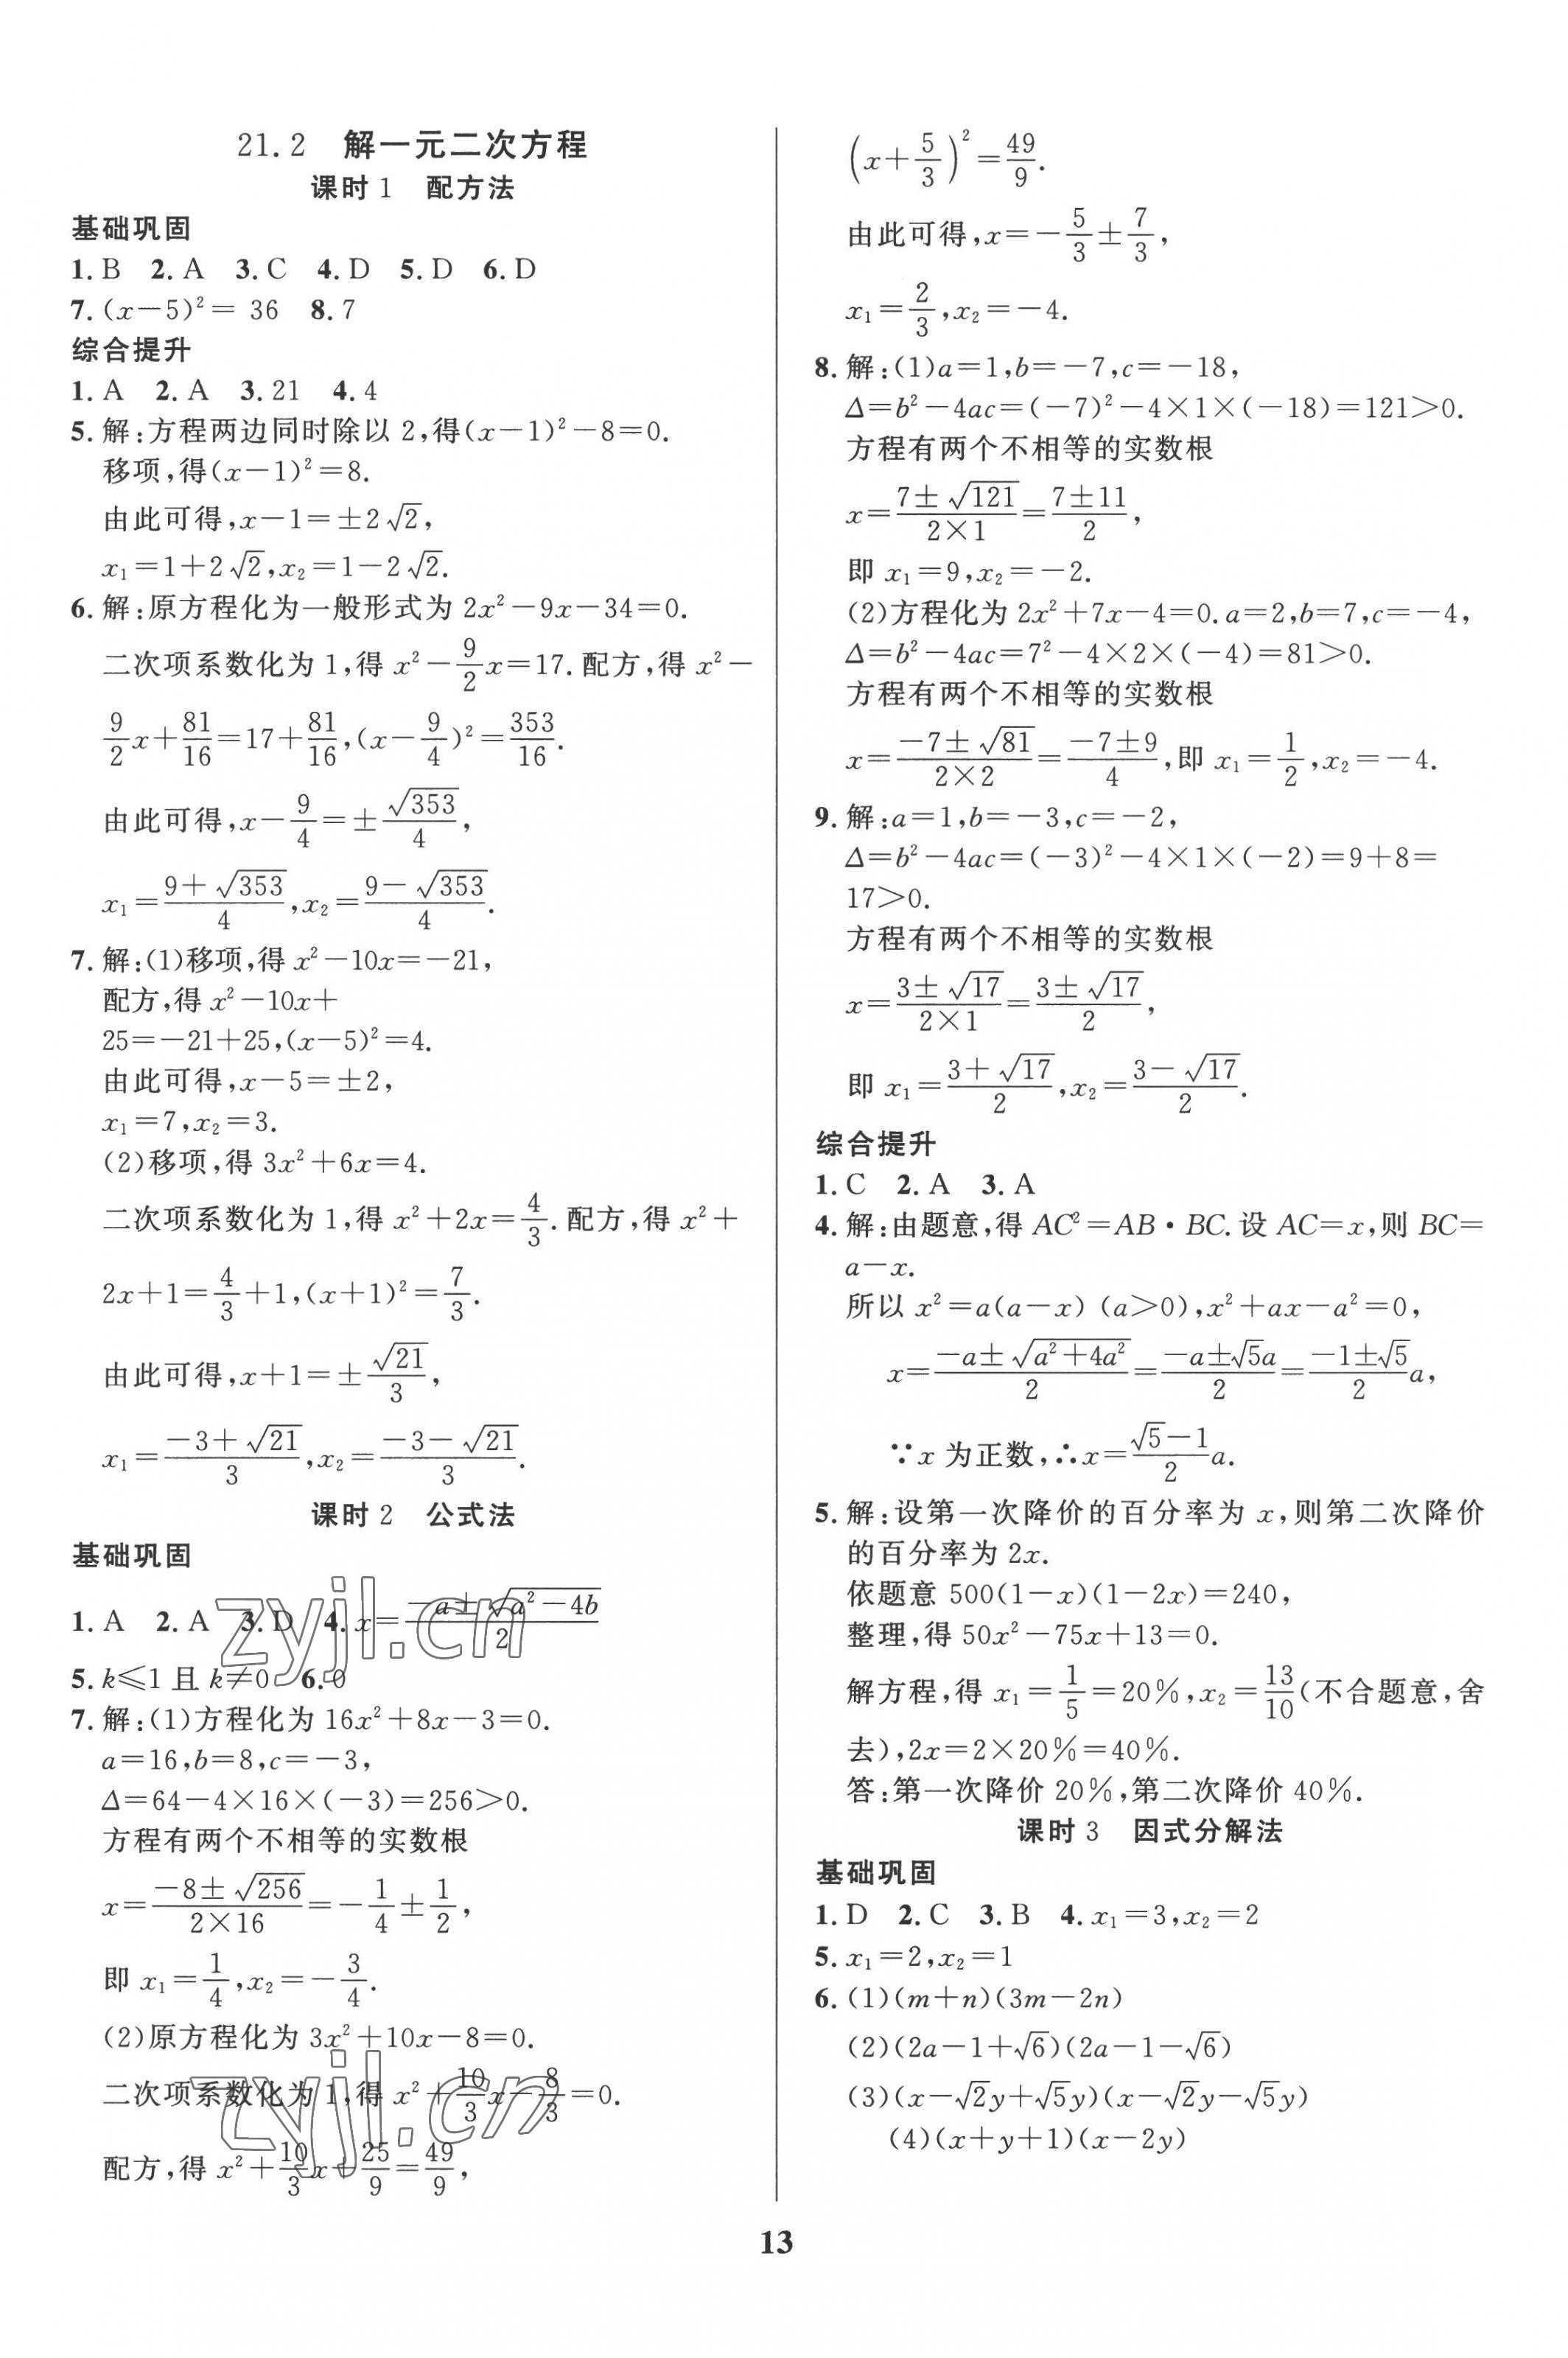 21.2 解一元二次方程
课时 1 配方法
基础巩固
1. B 2. A 3. C 4. D 5. D 6. D
7. (x−5)²= 36 8. 7
综合提升
1. A 2. A 3. 21 4. 4
5. 解:方程两边同时除以 2,得(x−1)²−8=0.
移项,得(x−1)²=8.
由此可得,x−1=±2√2,
x₁=1+2√2,x₂=1−2√2.
6. 解:原方程化为一般形式为 2x²−9x−34=0.
二次项系数化为 1,得 x²−9/2x=17. 配方,得 x²−
9/2x+81/16=17+81/16,(x−9/4)²=353/16.
由此可得,x−9/4=±√353/4,
x₁=(9+√353)/4,x₂=(9−√353)/4.
7. 解:(1)移项,得 x²−10x=−21,
配方,得 x²−10x+
25=−21+25,(x−5)²=4.
由此可得,x−5=±2,
x₁=7,x₂=3.
(2)移项,得 3x²+6x=4.
二次项系数化为 1,得 x²+2x=4/3. 配方,得 x²+
2x+1=4/3+1,(x+1)²=7/3.
由此可得,x+1=±√21/3,
x₁=(−3+√21)/3,x₂=(−3−√21)/3.
课时 2 公式法
基础巩固
1. A 2. A 3. D 4. x=(−a±√(a²−4b))/2
5. k≤1 且 k≠0 6. 0
7. 解:(1)方程化为 16x²+8x−3=0.
a=16,b=8,c=−3,
Δ=64−4×16×(−3)=256>0.
方程有两个不相等的实数根
x=(−8±√256)/(2×16)=−1/4±1/2,
即 x₁=1/4,x₂=−3/4.
(2)原方程化为 3x²+10x−8=0.
二次项系数化为 1,得 x²+10/3x−8/3=0.
配方,得 x²+10/3x+25/9=49/9,
(x+5/3)²=49/9.
由此可得,x=−5/3±7/3,
x₁=2/3,x₂=−4.
8. 解:(1)a=1,b=−7,c=−18,
Δ=b²−4ac=(−7)²−4×1×(−18)=121>0.
方程有两个不相等的实数根
x=(7±√121)/(2×1)=(7±11)/2,
即 x₁=9,x₂=−2.
(2)方程化为 2x²+7x−4=0. a=2,b=7,c=−4,
Δ=b²−4ac=7²−4×2×(−4)=81>0.
方程有两个不相等的实数根
x=(−7±√81)/(2×2)=(−7±9)/4,即 x₁=1/2,x₂=−4.
9. 解:a=1,b=−3,c=−2,
Δ=b²−4ac=(−3)²−4×1×(−2)=9+8=
17>0.
方程有两个不相等的实数根
x=(3±√17)/(2×1)=(3±√17)/2,
即 x₁=(3+√17)/2,x₂=(3−√17)/2.
综合提升
1. C 2. A 3. A
4. 解:由题意,得 AC²=AB·BC. 设 AC=x,则 BC=
a−x.
所以 x²=a(a−x) (a>0),x²+ax−a²=0,
x=(−a±√(a²+4a²))/2=(−a±√5a)/2=(−1±√5)/2a,
∵x 为正数,∴x=(√5−1)/2a.
5. 解:设第一次降价的百分率为 x,则第二次降价
的百分率为 2x.
依题意 500(1−x)(1−2x)=240,
整理,得 50x²−75x+13=0.
解方程,得 x₁=1/5=20%,x₂=13/10(不合题意,舍
去),2x=2×20%=40%.
答:第一次降价 20%,第二次降价 40%.
课时 3 因式分解法
基础巩固
1. D 2. C 3. B 4. x₁=3,x₂=2
5. x₁=2,x₂=1
6. (1)(m+n)(3m−2n)
(2)(2a−1+√6)(2a−1−√6)
(3)(x−√2y+√5y)(x−√2y−√5y)
(4)(x+y+1)(x−2y)
13
zyjl.cn
zyjl.cn